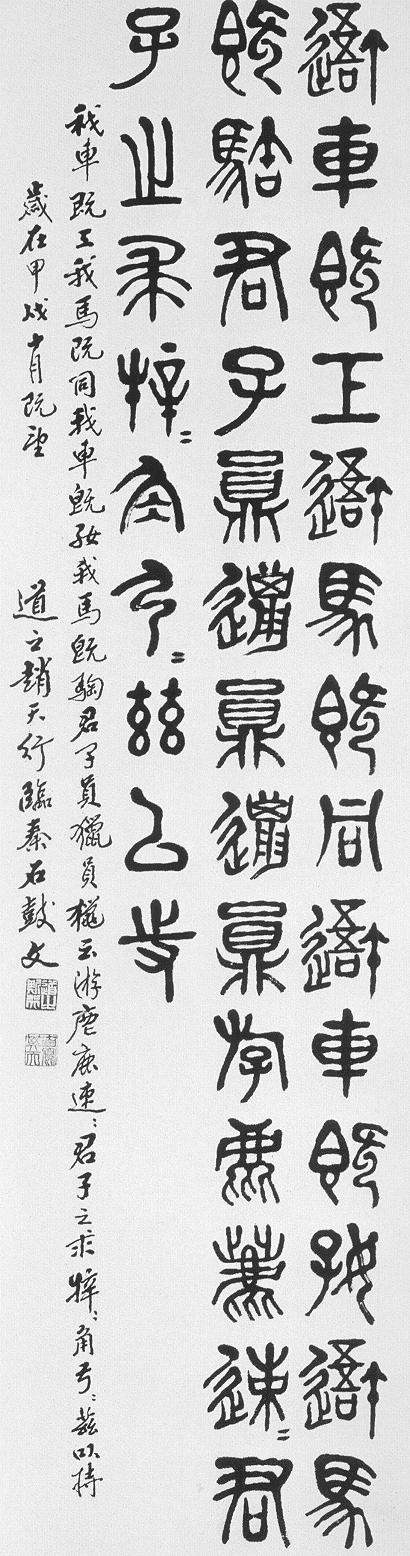 䢒車既工䢒馬既同䢒車既好䢒馬
既騊君子員邋員邋員斿麀鹿速=君
子之求=角弓=茲以寺
我車既工我馬既同我車既好我馬既騊君子員獵員獵云游麀鹿速：君子之求：角弓：茲以持
歲在甲戌十月既望　道之趙天行臨秦石鼓文